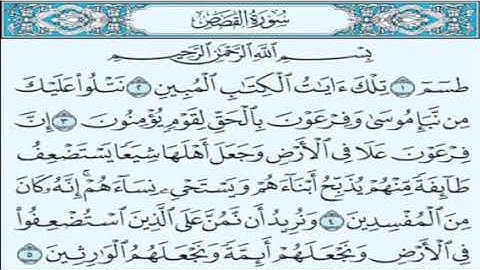 سُورَةُ القَصَصِ
بِسْمِ اللَّهِ الرَّحْمَٰنِ الرَّحِيمِ
طسٓمٓ ١ تِلْكَ ءَايَٰتُ الْكِتَٰبِ الْمُبِينِ ٢ نَتْلُوا۟ عَلَيْكَ
مِن نَّبَإِ مُوسَىٰ وَفِرْعَوْنَ بِالْحَقِّ لِقَوْمٍ يُؤْمِنُونَ ٣ إِنَّ
فِرْعَوْنَ عَلَا فِى الْأَرْضِ وَجَعَلَ أَهْلَهَا شِيَعًا يَسْتَضْعِفُ
طَآئِفَةً مِّنْهُمْ يُذَبِّحُ أَبْنَآءَهُمْ وَيَسْتَحْىِۦ نِسَآءَهُمْ ۚ إِنَّهُۥ كَانَ
مِنَ الْمُفْسِدِينَ ٤ وَنُرِيدُ أَن نَّمُنَّ عَلَى الَّذِينَ اسْتُضْعِفُوا۟
فِى الْأَرْضِ وَنَجْعَلَهُمْ أَئِمَّةً وَنَجْعَلَهُمُ الْوَٰرِثِينَ ٥